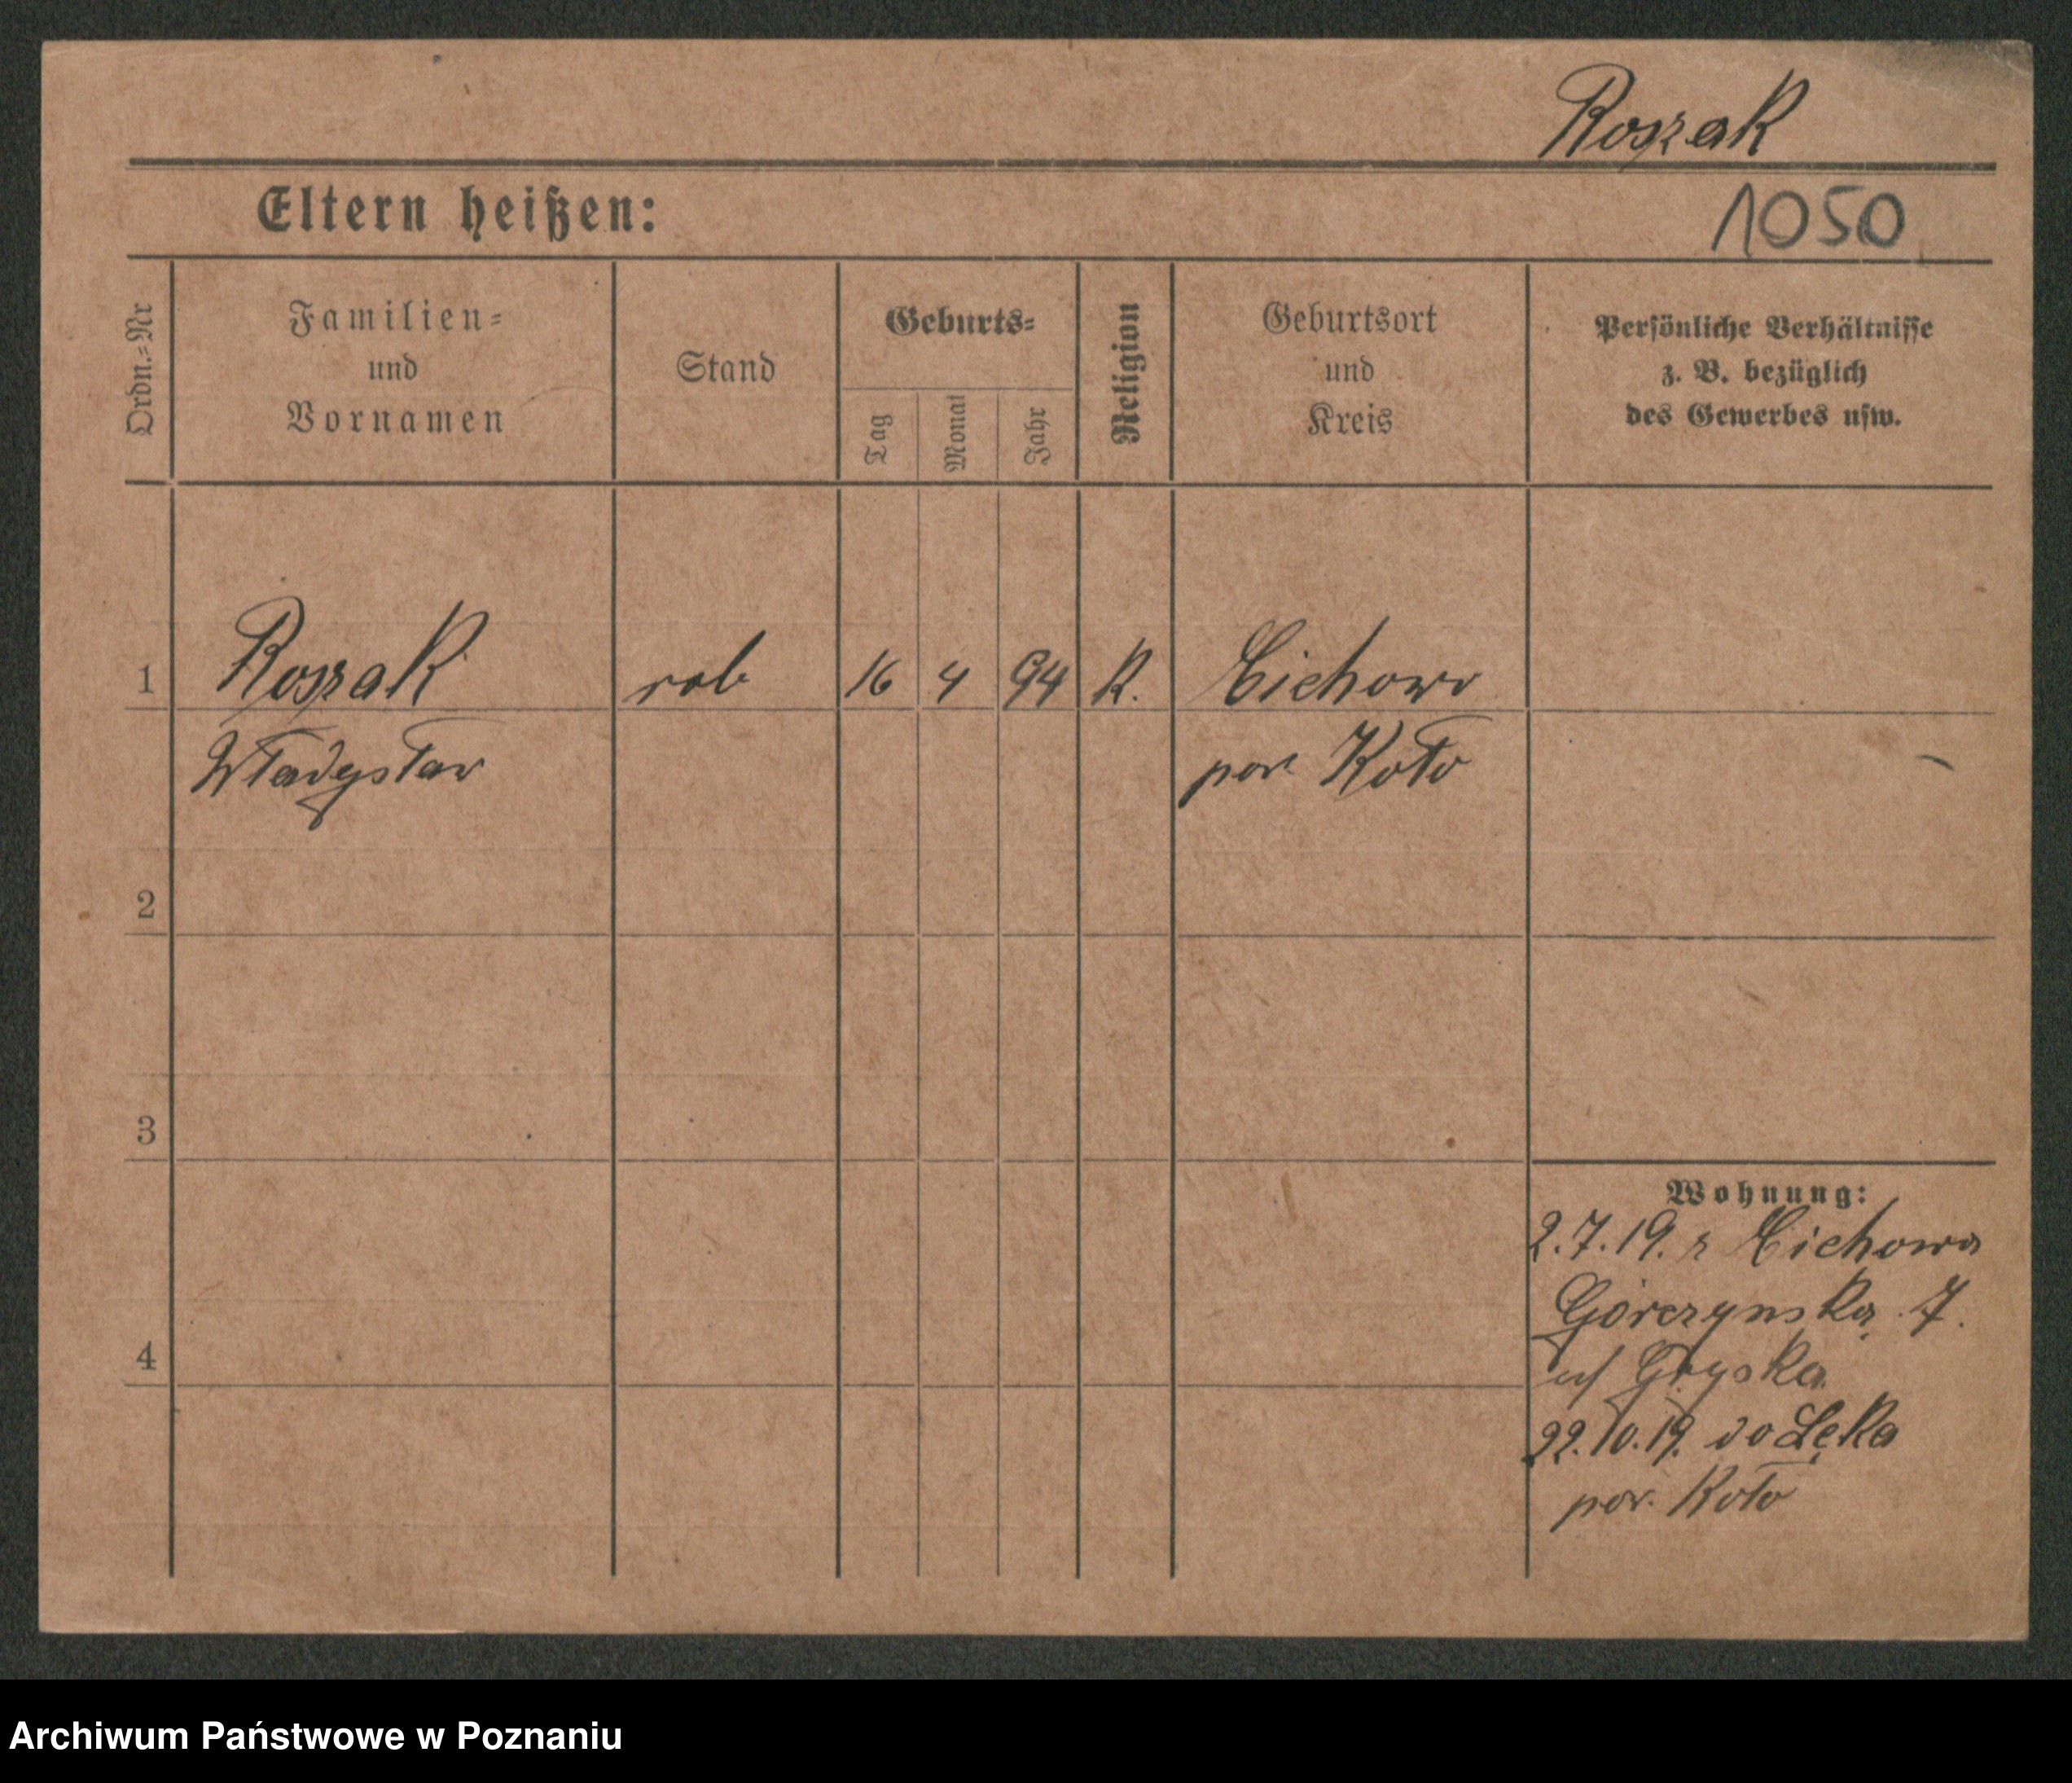 Roszak
Eltern heißen:
1050
Ordn.=Nr
Familien=
und
Vornamen
Stand
Geburts=
Tag
Monat
Jahr
Religion
Geburtsort
und
Kreis
Persönliche Verhältnisse
z. B. bezüglich
des Gewerbes usw.
1
Roszak
rob
16
4
94
K.
Cichowo
Władysław
pow. Koło
2
3
4
Wohnung:
2.7.19. z Cichowa
Górczynska 7.
22.10.19. do Łęka
pow. Koło
Archiwum Państwowe w Poznaniu